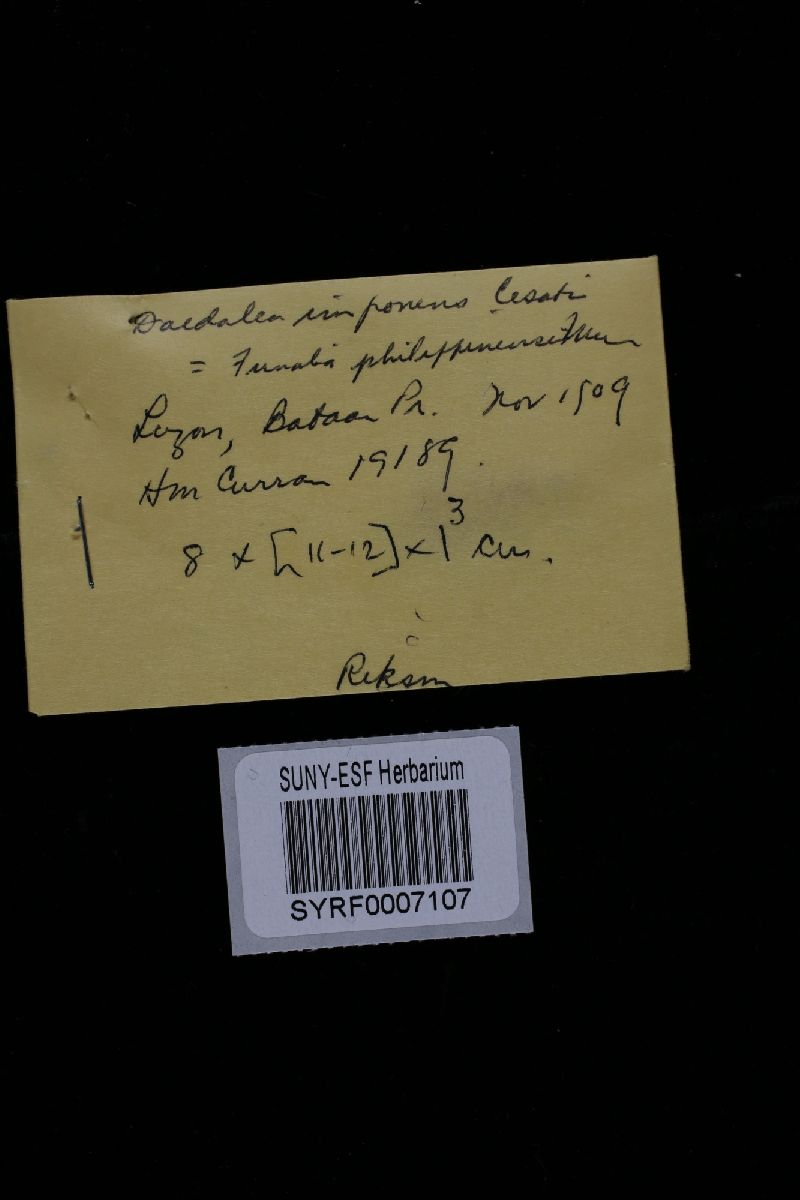 Daedalea imponens Cesati
= Funalia philippinensis Mur
Luzon, Bataan Pr. Nov 1909
Hm Curran 19189.
8 x [11-12] x 1 3 cm.
SUNY-ESF Herbarium
SYRF0007107